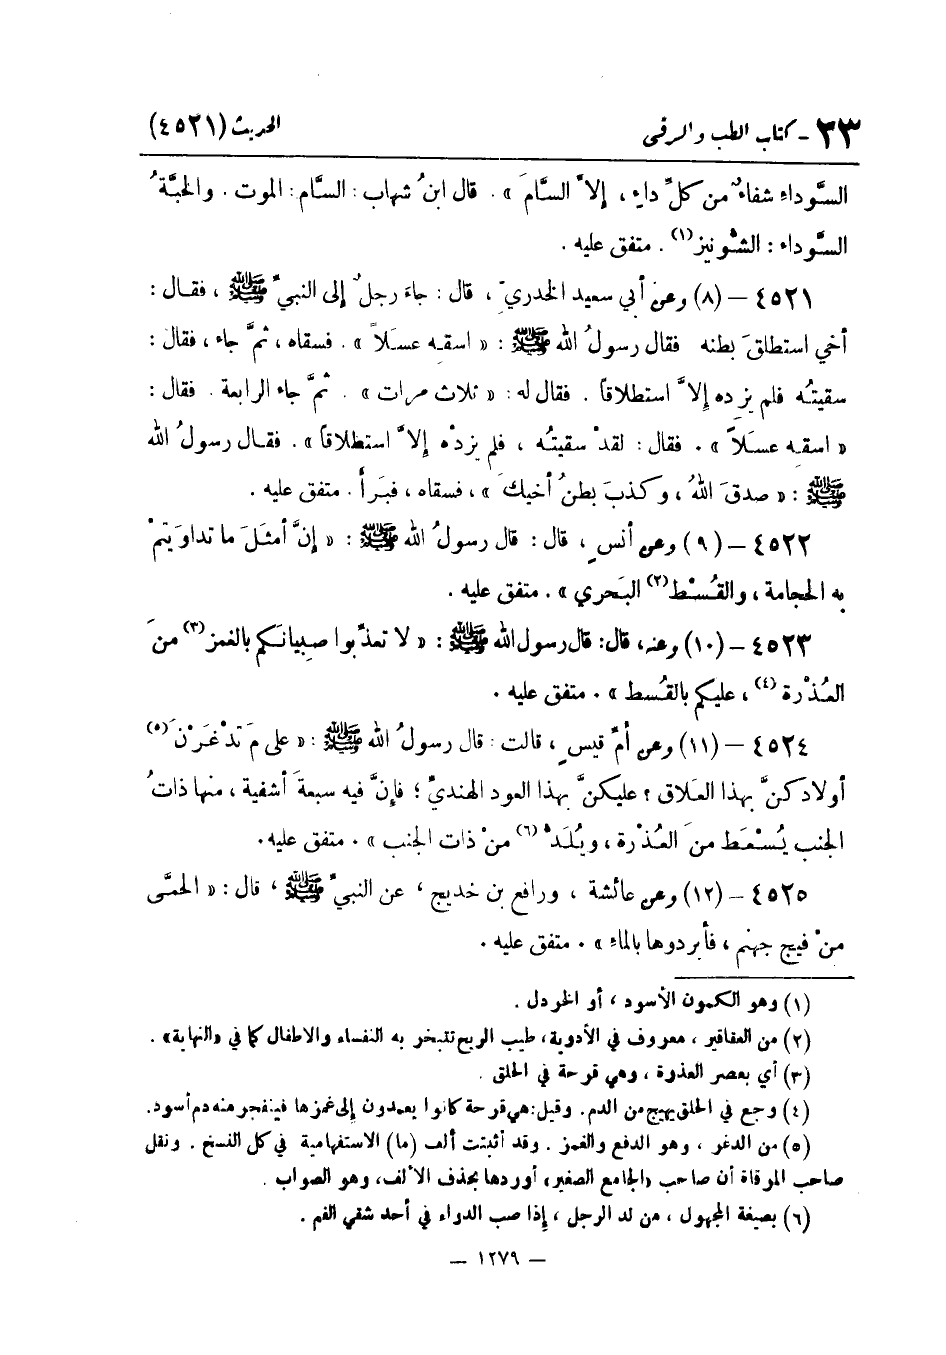 ٢٣ - كتاب الطب والرقى الحديث (٤٥٢١)
السَّوداءِ شفاءٌ من كلِّ داءٍ ، إلاَّ السَّامَ » . قال ابنُ شهاب : السَّام : الموت . والحبَّةُ
السوداء : الشُونيز(١) . متفق عليه .
٤٥٢١ – (٨) وعن أبي سعيد الخدريِّ ، قال : جاءَ رجلٌ إلى النبيِّ ﷺ ، فقال :
أخي استطلقَ بطنه فقال رسولُ الله ﷺ : « اسقِه عسَلاً » . فسقاه ، ثمَّ جاء ، فقال :
سقيتُه فلم يزده إلاَّ استطلاقاً . فقال له : « ثلاث مرات » . ثمَّ جاء الرابعة . فقال :
« اسقِه عسَلاً » . فقال : لقدْ سقيتُه ، فلم يزدْه إلاَّ استطلاقاً » . فقال رسولُ الله
ﷺ : « صدقَ اللهُ ، وكذبَ بطنُ أخيك » ، فسقاه ، فبَرأَ . متفق عليه .
٤٥٢٢ – (٩) وعن أنسٍ ، قال : قال رسولُ الله ﷺ : « إنَّ أمثَلَ ما تداوَيتمْ
به الحجامة ، والقُسْط(٢) البَحري » . متفق عليه .
٤٥٢٣ – (١٠) وعنه، قال: قال رسول الله ﷺ : « لا تعذِّبوا صبيانَكم بالغمز(٣) منَ
العُذْرة (٤) ، عليكم بالقُسط » . متفق عليه .
٤٥٢٤ – (١١) وعن أمِّ قيسٍ ، قالت : قال رسولُ الله ﷺ : « على مَ تدْغَرْنَ(٥)
أولادكنَّ بهذا العَلاق ؟ عليكنَّ بهذا العود الهنديِّ ؛ فإنَّ فيه سبعةَ أشفية ، منها ذاتُ
الجنب يُسْعَط منَ العُذْرة ، ويُلَدُّ (٦) منْ ذات الجنب » . متفق عليه .
٤٥٢٥ – (١٢) وعن عائشة ، ورافع بن خديج ، عن النبيِّ ﷺ ، قال : « الحمَّى
منْ فيح جهنم ، فأبردوها بالماءِ » . متفق عليه .
(١) وهو الكمون الأسود ، أو الخردل .
(٢) من العقاقير ، معروف في الأدوية، طيب الريح تتبخر به النفساء والاطفال كما في «النهاية» .
(٣) أي بعصر العذرة ، وهي قرحة في الحلق .
(٤) وجع في الحلق يهيج من الدم. وقيل: هي قرحة كانوا يعمدون إلى غمزها فينفجر منه دم أسود.
(٥) من الدغر ، وهو الدفع والغمز . وقد أثبتت ألف (ما) الاستفهامية في كل النسخ . ونقل
صاحب المرقاة أن صاحب «الجامع الصغير» أوردها بحذف الألف، وهو الصواب .
(٦) بصيغة المجهول ، من لد الرجل ، إذا صب الدواء في أحد شقي الفم .
– ١٢٧٩ –